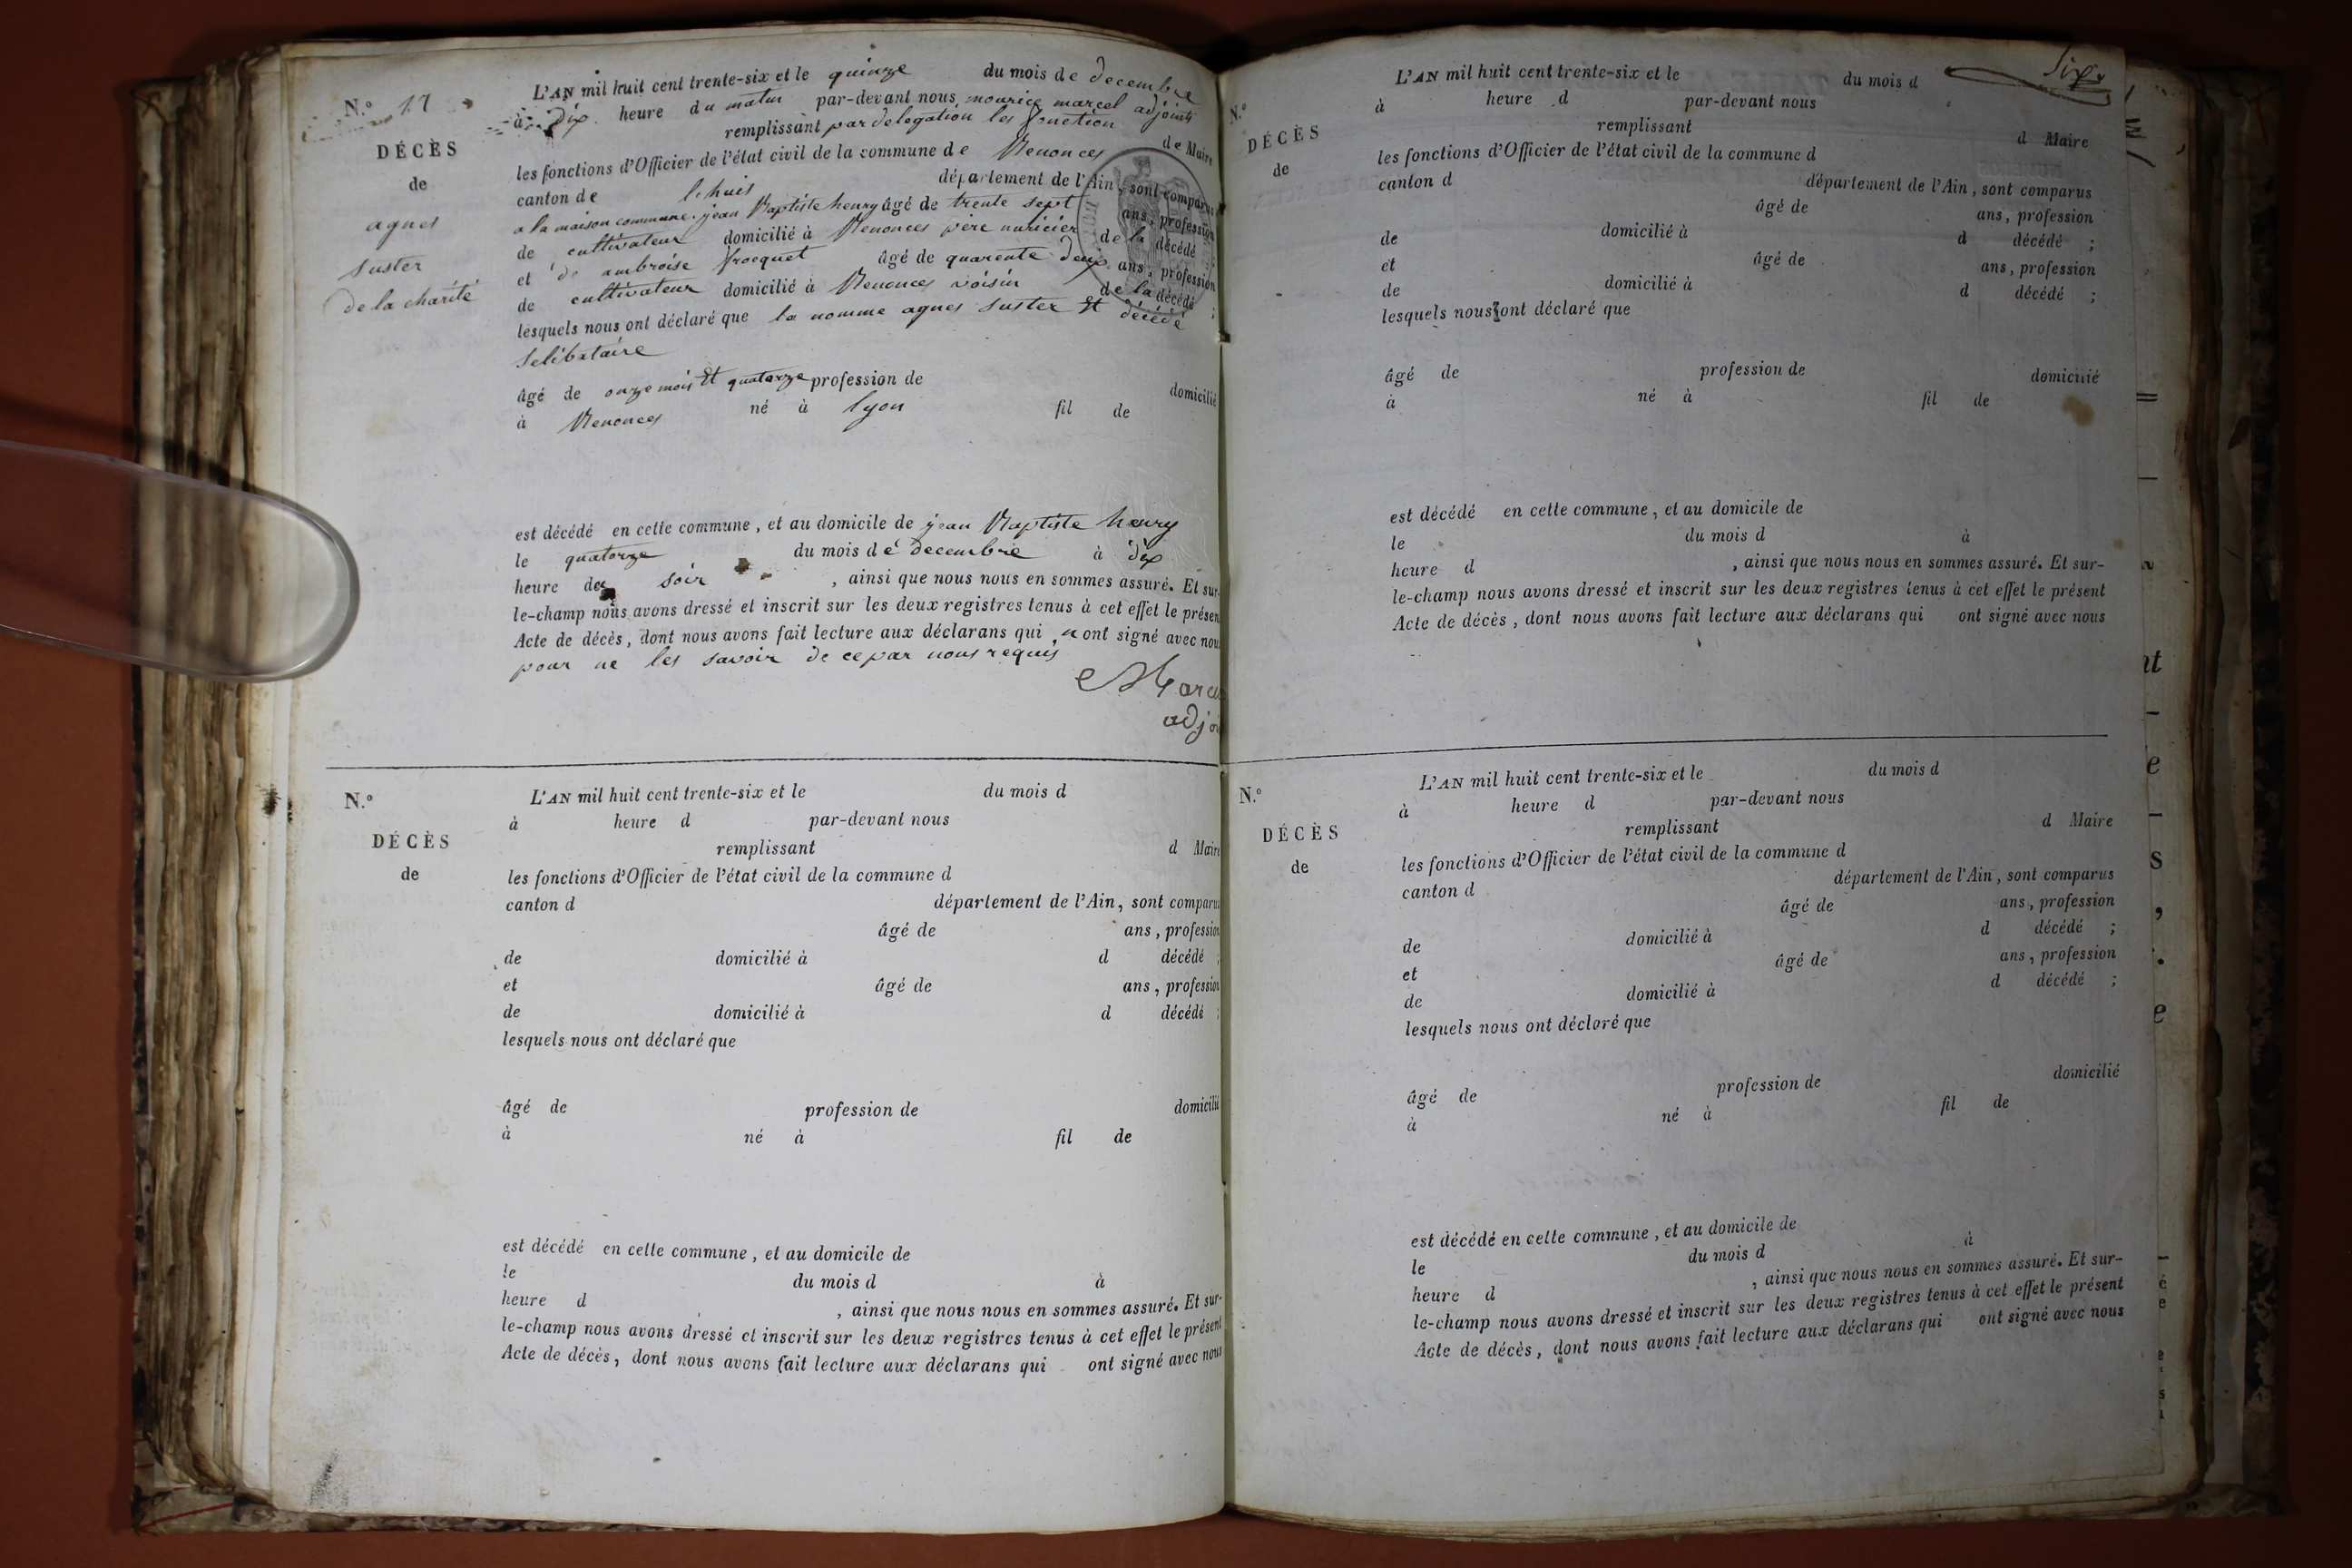 N.° 17
DÉCÈS
de
agnes
Suster
de la charité
L'AN mil huit cent trente-six et le quinze du mois de decembre
à dix heure du matin par-devant nous mourice marcel adjoint
remplissant par delegation les fonction de Maire
les fonctions d'Officier de l'état civil de la commune de Benonces
canton de lhuis département de l'Ain, sont comparus
a la maison commune. jean Baptiste henry âgé de trente sept ans, profession
de cultivateur domicilié à Benonces père nuricier de la décédé
et de ambroise frocquet âgé de quarente deux ans, profession
de cultivateur domicilié à Benonces voisin de la décédé ;
lesquels nous ont déclaré que la nomme agnes Suster Et décédé
Selibataire
âgé de onze mois Et quatorze profession de domicilié
à Benonces né à lyon fil de
est décédé en cette commune, et au domicile de jean Baptiste henry
le quatorze du mois de decembre à dix
heure du soir , ainsi que nous nous en sommes assuré. Et sur-
le-champ nous avons dressé et inscrit sur les deux registres tenus à cet effet le présen
Acte de décès, dont nous avons fait lecture aux déclarans qui n ont signé avec nou
pour ne les savoir de ce par nous requis
Marce
adjoi
N.°
DÉCÈS
de
L'AN mil huit cent trente-six et le du mois d
à heure d par-devant nous
remplissant d Maire
les fonctions d'Officier de l'état civil de la commune d
canton d département de l'Ain, sont comparus
âgé de ans, profession
de domicilié à d décédé ;
et âgé de ans, profession
de domicilié à d décédé ;
lesquels nous ont déclaré que
âgé de profession de domicilié
à né à fil de
est décédé en cette commune, et au domicile de
le du mois d à
heure d , ainsi que nous nous en sommes assuré. Et sur-
le-champ nous avons dressé et inscrit sur les deux registres tenus à cet effet le présent
Acte de décès, dont nous avons fait lecture aux déclarans qui ont signé avec nous
Six
N.°
DÉCÈS
de
L'AN mil huit cent trente-six et le du mois d
à heure d par-devant nous
remplissant d Maire
les fonctions d'Officier de l'état civil de la commune d
canton d département de l'Ain, sont comparus
âgé de ans, profession
de domicilié à d décédé ;
et âgé de ans, profession
de domicilié à d décédé ;
lesquels nous ont déclaré que
âgé de profession de domicilié
à né à fil de
est décédé en cette commune, et au domicile de
le du mois d à
heure d , ainsi que nous nous en sommes assuré. Et sur-
le-champ nous avons dressé et inscrit sur les deux registres tenus à cet effet le présent
Acte de décès, dont nous avons fait lecture aux déclarans qui ont signé avec nous
N.°
DÉCÈS
de
L'AN mil huit cent trente-six et le du mois d
à heure d par-devant nous
remplissant d Maire
les fonctions d'Officier de l'état civil de la commune d
canton d département de l'Ain, sont comparus
âgé de ans, profession
de domicilié à d décédé ;
et âgé de ans, profession
de domicilié à d décédé ;
lesquels nous ont déclaré que
âgé de profession de domicilié
à né à fil de
est décédé en cette commune, et au domicile de
le du mois d à
heure d , ainsi que nous nous en sommes assuré. Et sur-
le-champ nous avons dressé et inscrit sur les deux registres tenus à cet effet le présent
Acte de décès, dont nous avons fait lecture aux déclarans qui ont signé avec nous